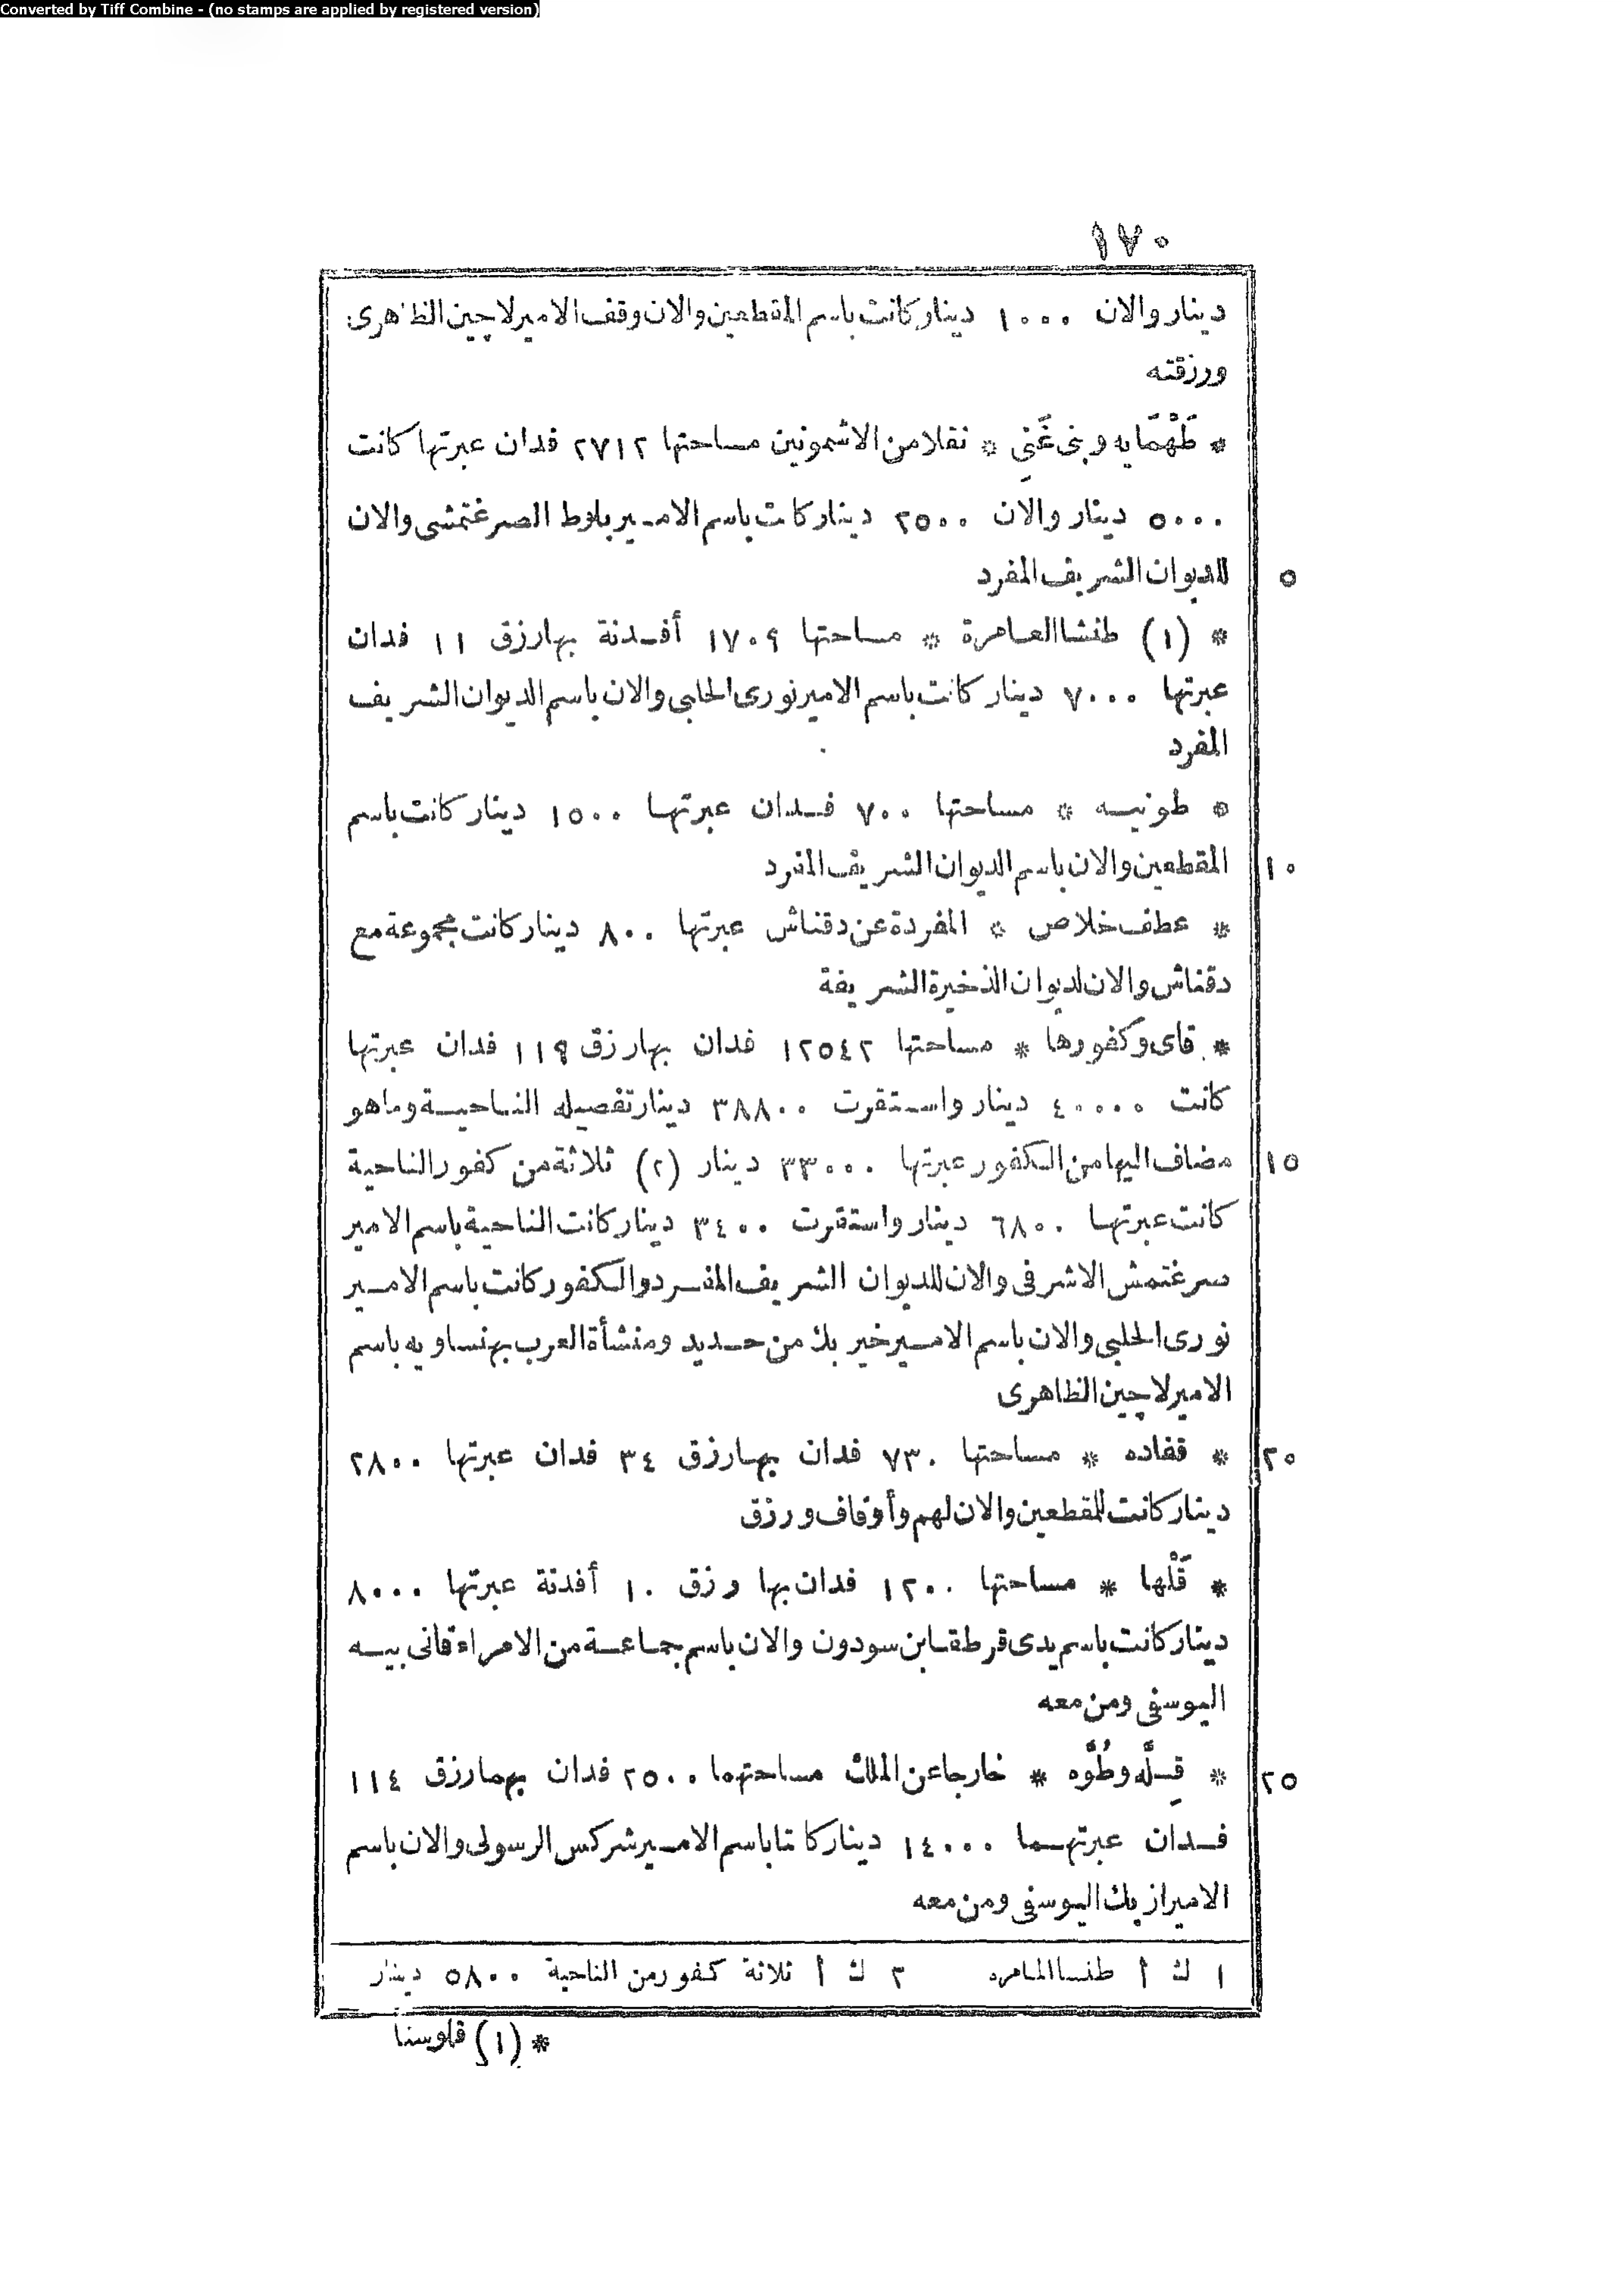 Converted by Tiff Combine - (no stamps are applied by registered version)
١٧٠
دينار والان ١٠٠٠ دينار كانت باسم المقطعين والان وقف الامير لاچين الظاهرى
ورزقته
* طَهْمَايه وبنى غَنِي * نقلا من الاشمونين مساحتها ٢٧١٢ فدان عبرتها كانت
٥٠٠٠ دينار والان ٢٥٠٠ دينار كانت باسم الامير بلوط الصرغتمشى والان
للديوان الشريف المفرد ٥
* (١) طنشا العامرة * مساحتها ١٧٠٩ أفدنة بها رزق ١١ فدان
عبرتها ٧٠٠٠ دينار كانت باسم الامير نورى الحلبى والان باسم الديوان الشريف
المفرد
* طونيه * مساحتها ٧٠٠ فدان عبرتها ١٥٠٠ دينار كانت باسم
المقطعين والان باسم الديوان الشريف المفرد ١٠
* عطف خلاص * المفردة عن دقناش عبرتها ٨٠٠ دينار كانت مجموعة مع
دقناش والان لديوان الذخيرة الشريفة
* قاى وكفورها * مساحتها ١٢٥٤٢ فدان بها رزق ١١٩ فدان عبرتها
كانت ٤٠٠٠٠ دينار واستقرت ٣٨٨٠٠ دينار تفصيله الناحية وما هو
مضاف اليها من الكفور عبرتها ٣٣٠٠٠ دينار (٢) ثلاثة من كفور الناحية ١٥
كانت عبرتها ٦٨٠٠ دينار واستقرت ٣٤٠٠ دينار كانت الناحية باسم الامير
صرغتمش الاشرفى والان للديوان الشريف المفرد والكفور كانت باسم الامير
نورى الحلبى والان باسم الامير خير بك من حديد ومنشأة العرب بهنساويه باسم
الامير لاچين الظاهرى
* قفاده * مساحتها ٧٣٠ فدان بها رزق ٣٤ فدان عبرتها ٢٨٠٠ ٢٠
دينار كانت للمقطعين والان لهم وأوقاف ورزق
* قَلْها * مساحتها ١٢٠٠ فدان بها رزق ١٠ أفدنة عبرتها ٨٠٠٠
دينار كانت باسم يدى قرطقا بن سودون والان باسم جماعة من الامراء قانى بيه
اليوسفى ومن معه
* قِلَّه وطُوَّه * خارجا عن الملك مساحتهما ٢٥٠٠ فدان بهما رزق ١١٤ ٢٥
فدان عبرتهما ١٤٠٠٠ دينار كانتا باسم الامير شركس الرسولى والان باسم
الامير ازبك اليوسفى ومن معه
١ ك أ طنسا المامره ٢ ك أ ثلاثة كفور من الناحية ٥٨٠٠ دينار
* (١) قلوسنا